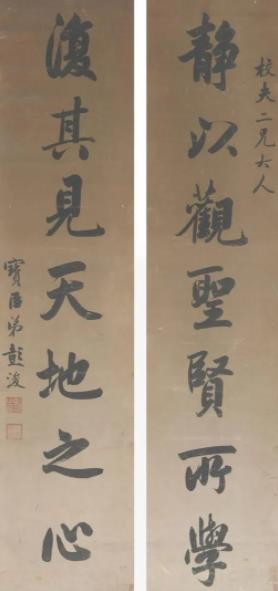 校夫二兄大人
靜以觀聖賢所學
復其見天地之心
寶臣弟彭浚